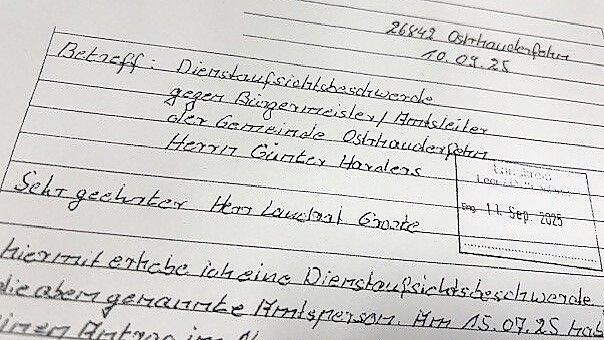 26842 Ostrhauderfehn
10.09.25
Betreff: Dienstaufsichtsbeschwerde
gegen Bürgermeister/Amtsleiter
der Gemeinde Ostrhauderfehn
Herrn Günter Harders
Landkreis
Eing. 11. Sep. 2025
Sehr geehrter Herr Landrat Groote
hiermit erhebe ich eine Dienstaufsichtsbeschwerde
die oben genannte Amtsperson. Am 15.07.25 hab
einen Antrag